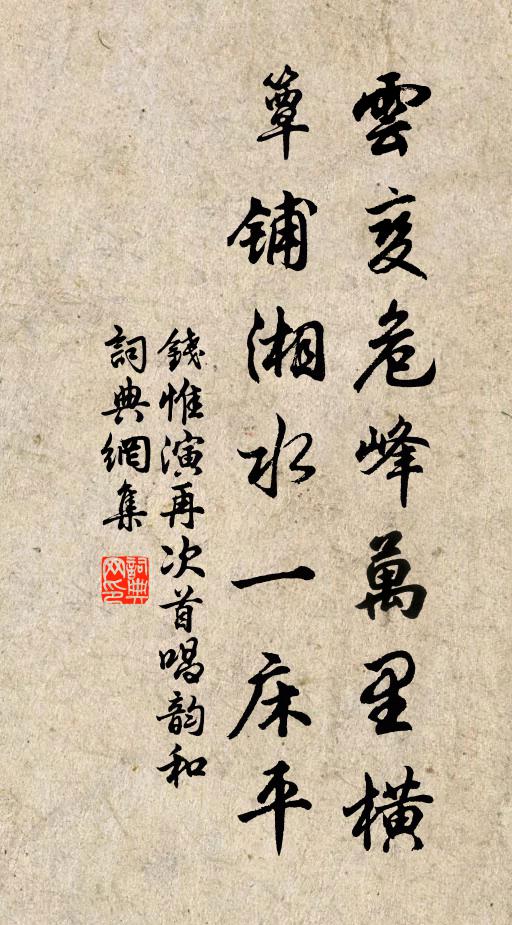 雲变危峰萬里橫
簟铺湘水一床平
錢惟演再次首唱韵和
詞典網集
詞典网印